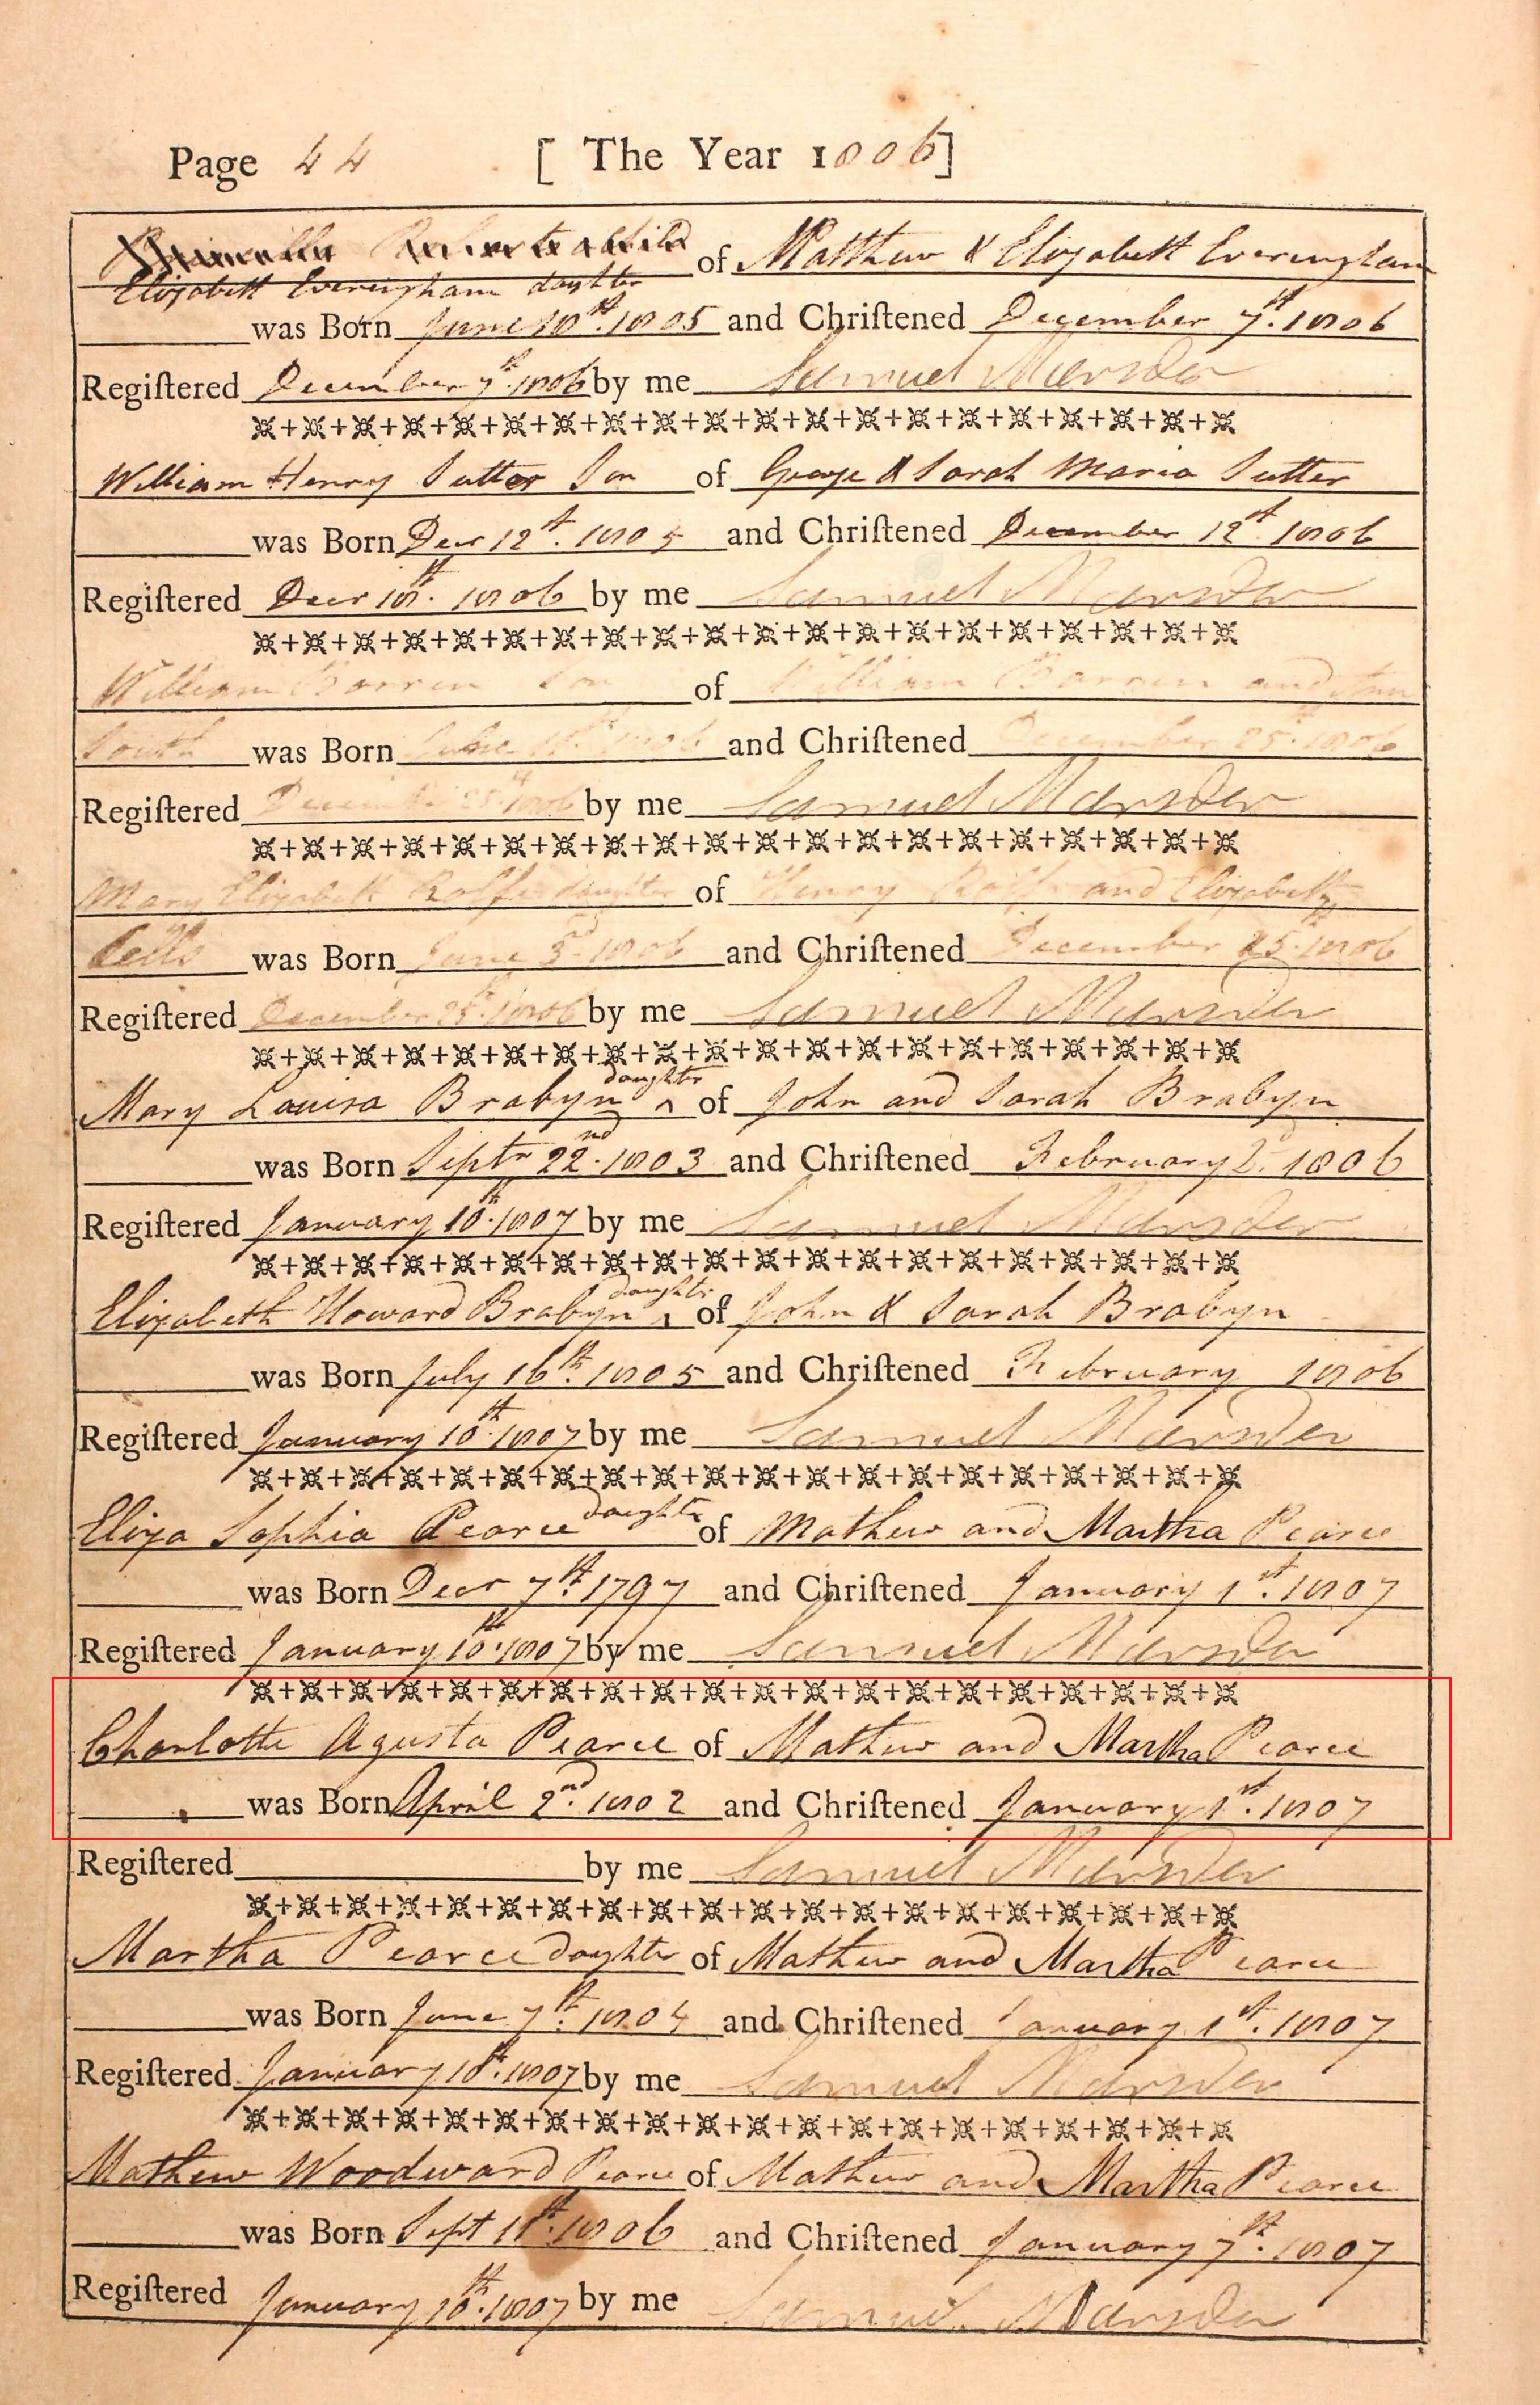 Page 44 [ The Year 1806]
of Matthew & Elizabeth Everingham
Elizabeth Everingham daughter
was Born June 10th. 1805 and Chriſtened December 7th. 1806
Regiſtered December 7th. 1806 by me Samuel Marsden
William Henry Sutter Son of George & Sarah Maria Sutter
was Born Decr 12th. 1805 and Chriſtened December 12th 1806
Regiſtered Decr 18th. 1806 by me Samuel Marsden
William Barren Son of William Barren and Ann
South was Born 1806 and Chriſtened December 25th. 1806
Regiſtered December 25th 1806 by me Samuel Marsden
Mary Elizabeth Rolfe daughter of Henry Rolfe and Elizabeth
Cells was Born June 3rd. 1806 and Chriſtened December 25th. 1806
Regiſtered December 25th. 1806 by me Samuel Marsden
daughter
Mary Louisa Brabyn ^ of John and Sarah Brabyn
was Born Septr 22nd. 1803 and Chriſtened February 2d. 1806
Regiſtered January 10th. 1807 by me Samuel Marsden
daughter
Elizabeth Howard Brabyn ^ of John & Sarah Brabyn
was Born July 16th. 1805 and Chriſtened February 1806
Regiſtered January 10th. 1807 by me Samuel Marsden
Eliza Sophia Pearce daughter of Mathew and Martha Pearce
was Born Decr 7th. 1797 and Chriſtened January 1st. 1807
Regiſtered January 10th. 1807 by me Samuel Marsden
Charlotte Agusta Pearce of Mathew and Martha Pearce
was Born April 2nd. 1802 and Chriſtened January 1st. 1807
Regiſtered by me Samuel Marsden
Martha Pearce daughter of Mathew and Martha Pearce
was Born June 7th. 1804 and Chriſtened January 1st. 1807
Regiſtered January 10th. 1807 by me Samuel Marsden
Mathew Woodward Pearce of Mathew and Martha Pearce
was Born Sept 11th. 1806 and Chriſtened January 7th. 1807
Regiſtered January 10th. 1807 by me Samuel Marsden